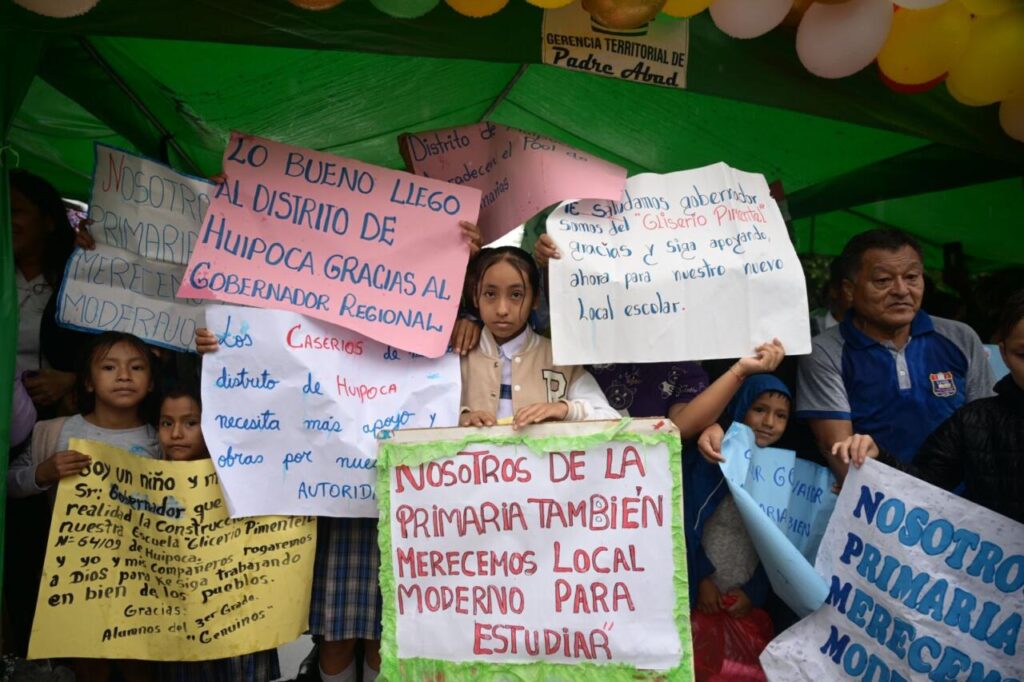 GERENCIA TERRITORIAL DE
Padre Abad
NOSOTR
PRIMARIA
MERECEM
MODERNO
LO BUENO LLEGO
AL DISTRITO DE
HUIPOCA GRACIAS AL
GOBERNADOR REGIONAL
Distrito de
agradecen el Pool de
Te Saludamos gobernador
somos del "Gliserio Pimentel"
gracias y siga apoyando,
ahora para nuestro nuevo
Local escolar.
Los CASERIOS de
distrito de HUIPOCA
necesita más apoyo y
obras por nue
AUTORID
Soy un niño y mi
Sr. Gobernador que
realidad la Construcc
nuestra Escuela "Glicerio Pimentel"
Nº 64109 de Huipoca.
y yo y mis compañeros rogaremos
a Dios para ke siga trabajando
en bien de los pueblos.
Gracias.
Alumnos del 3er Grado.
"Genuinos"
NOSOTROS DE LA
PRIMARIA TAMBIÉN
MERECEMOS LOCAL
MODERNO PARA
ESTUDIAR"
P
NOSOTRO
PRIMARIA
MERECEM
MODE